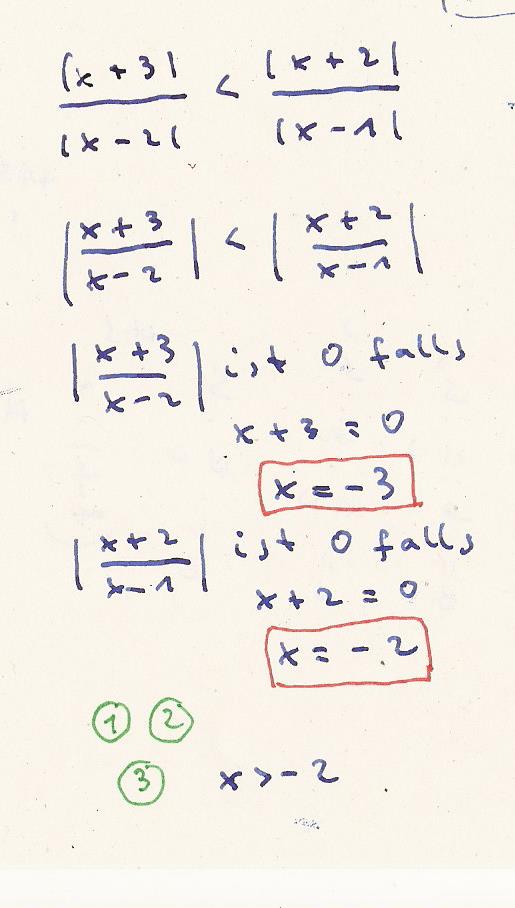 |x + 3| / |x - 2| < |x + 2| / |x - 1|
|x + 3 / x - 2| < |x + 2 / x - 1|
|x + 3 / x - 2| ist 0 falls
x + 3 = 0
x = - 3
|x + 2 / x - 1| ist 0 falls
x + 2 = 0
x = - 2
① ②
③ x > - 2